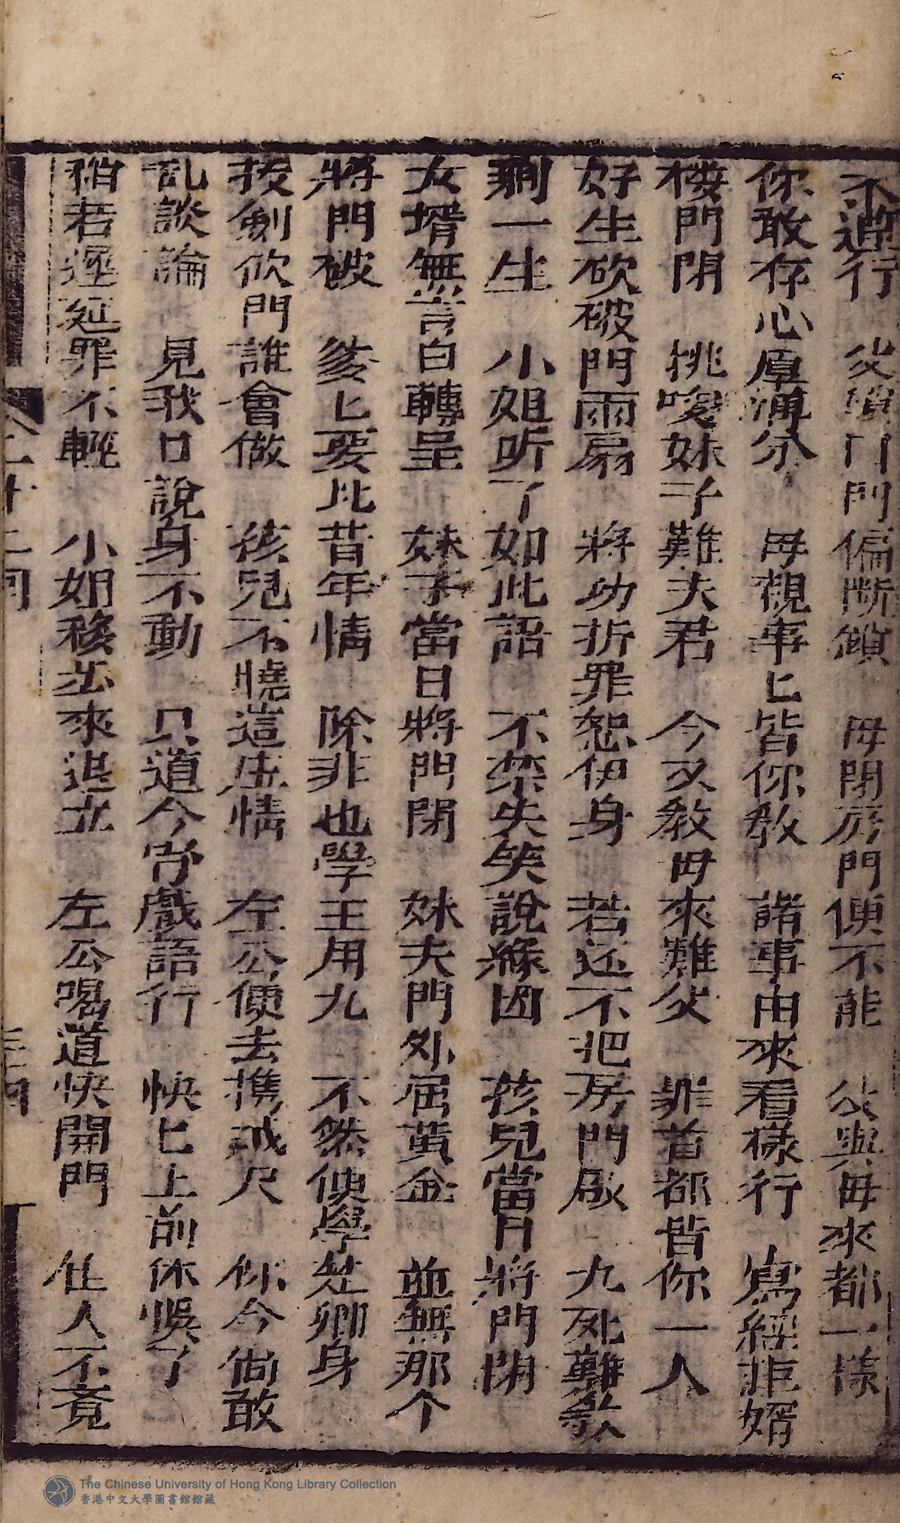 不遵行　父鎖門偏斷鎖　毋閉房門便不能　父與毋來都一樣
你敢存心厚薄分　毋視事匕皆你教　諸事由來看樣行　寫經非婿
樓門閉　挑唆妹子難夫君　今又教毋來難父　罪首都皆你一人
好生砍破門兩扇　將功折罪恕伊身　若还不把房門啟　九死難
剩一生　小姐听了如此語　不禁失笑說緣因　孩兒當日將門閉
女壻無言自轉呈　妹子當日將門閉　妹夫門外屈黃金　並無那个
將門破　爹匕要比昔年情　除非也學王用九　不然便學楚卿身
拔劍砍門誰會做　孩兒不曉這庄情　左公便去携戒尺　你今尚敢
乱談論　見我口說身不動　只道今宵戲語行　快匕上前休悞了
稍若遲延罪不輕　小姐移步來退立　左公喝道快開門　仕人不竟
二十二囘
三四
The Chinese University of Hong Kong Library Collection
香港中文大學圖書館館藏